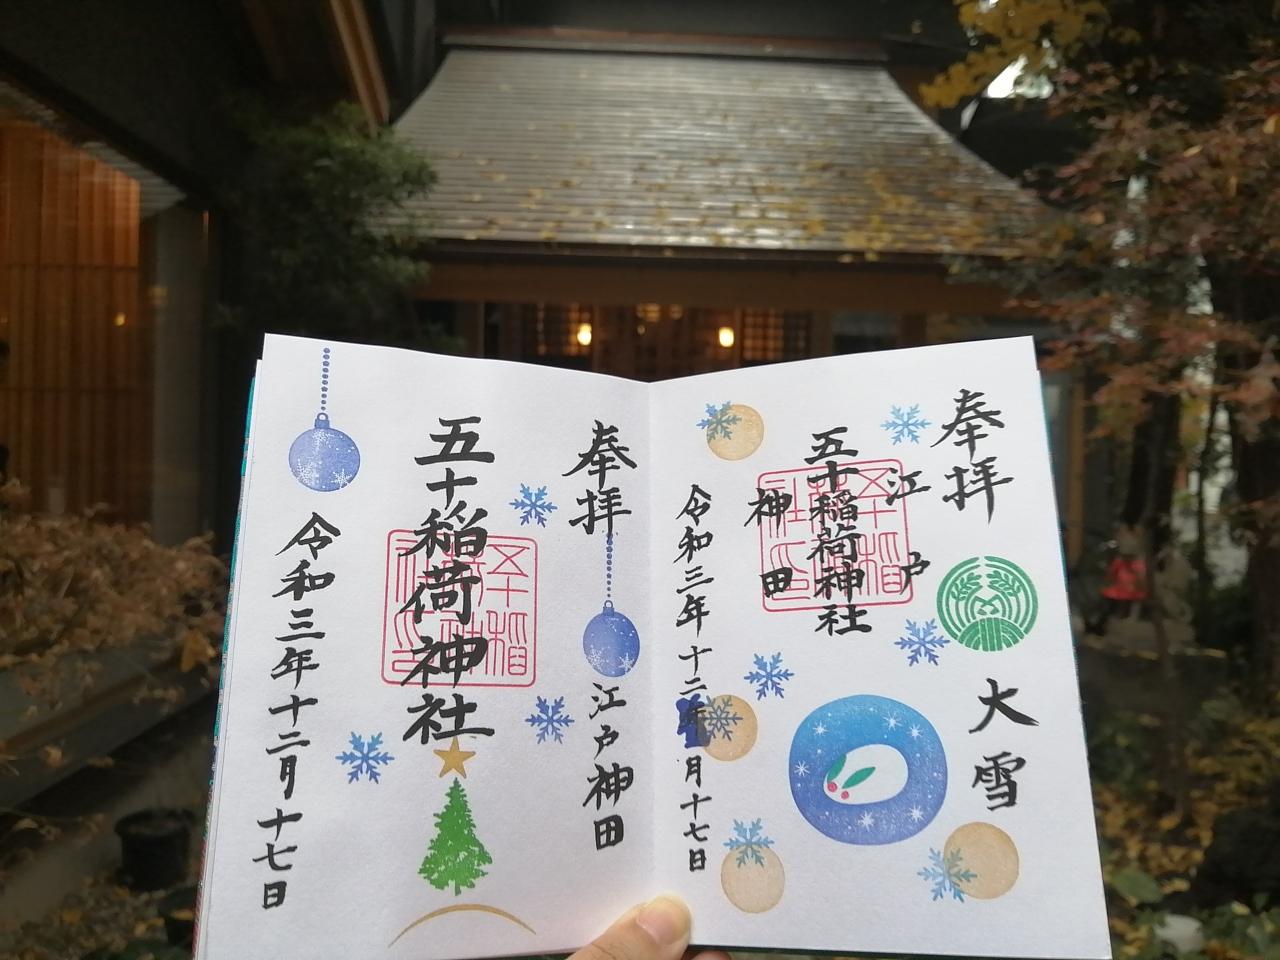 奉拝
大雪
江戸
五十稲荷神社
神田
令和三年十二月十七日
奉拝
江戸神田
五十稲荷神社
令和三年十二月十七日